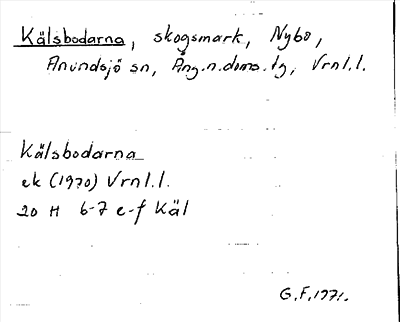 Kälsbodarna, skogsmark, Nybo,
Anundsjö sn, Ång.n.doms.tg, Vrnl.l.
Kälsbodarna
ek (1970) Vrnl.l.
20 H 6-7 e-f Käl
G.F. 1971.